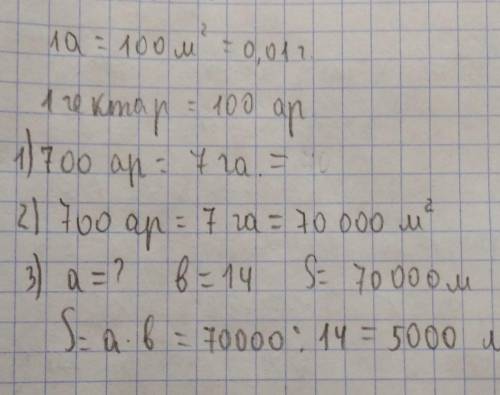 1а = 100 м² = 0,01 г.
1 гектар = 100 ар
1) 700 ар = 7 га. =
2) 700 ар = 7 га = 70 000 м²
3) а = ? в = 14 S = 70000 м
S = а · в = 70000 : 14 = 5000 м